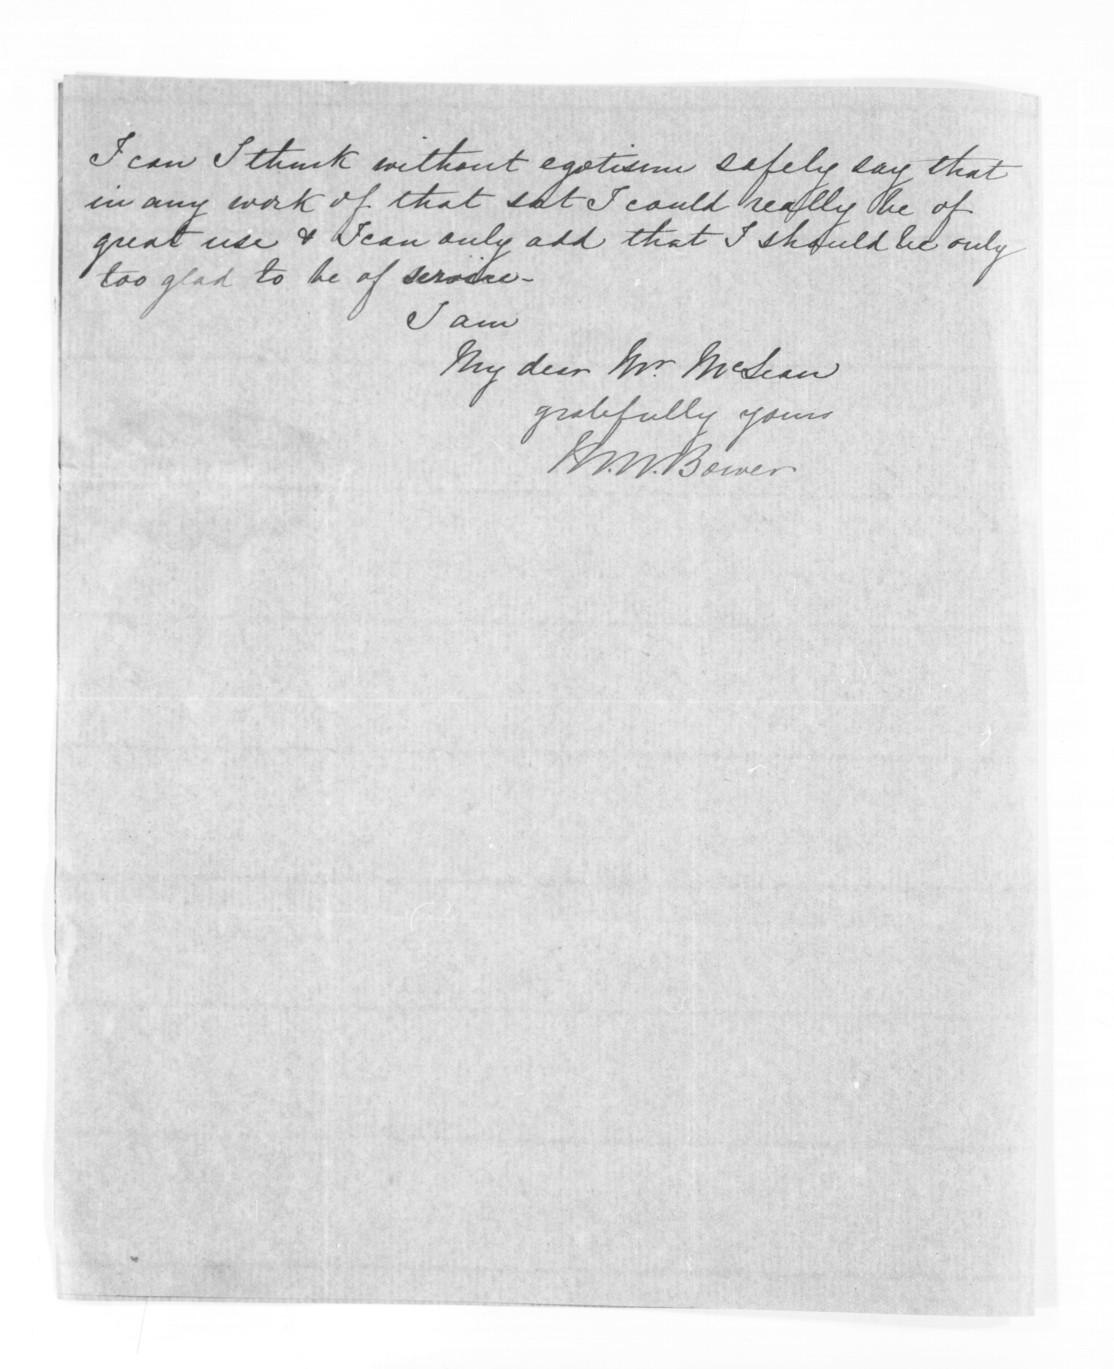 I can I think without egotism safely say that
in any work of that sort I could really be of
great use & I can only add that I should be only
too glad to be of service-
I am
My dear Mr. McLean
gratefully yours
M.N. Bower